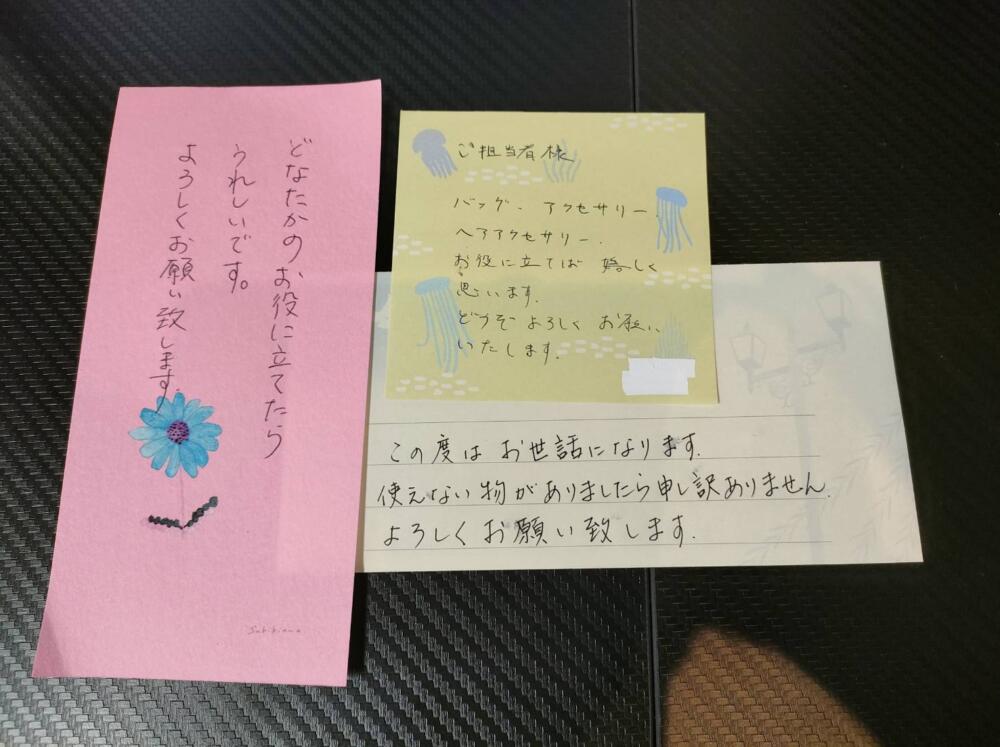 どなたかのお役に立てたら
うれしいです。
よろしくお願い致します
ご担当者様
バッグ、アクセサリー、
ヘアアクセサリー、
お役に立てば 嬉しく
思います。
どうぞ よろしく お願い
いたします。
この度は お世話になります。
使えない物がありましたら申し訳ありません。
よろしくお願い致します。